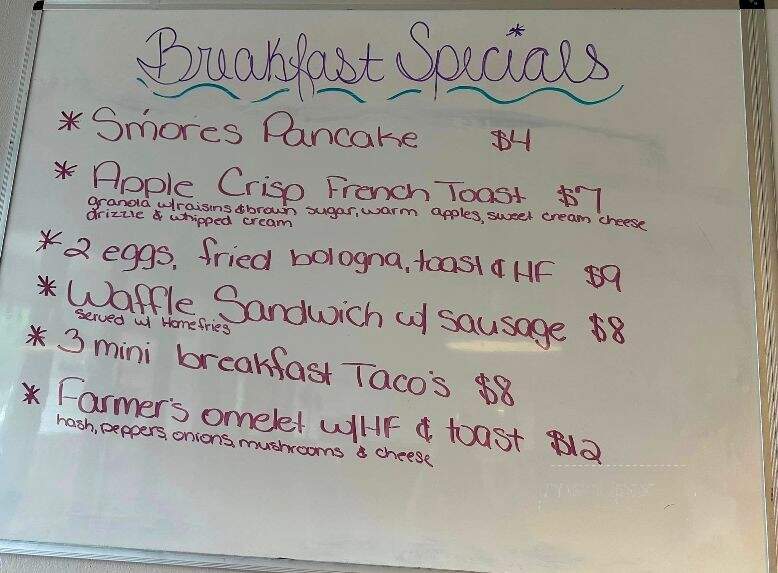 Breakfast Specials
* S'mores Pancake $4
* Apple Crisp French Toast $7
granola w/raisins & brown sugar, warm apples, sweet cream cheese
drizzle & whipped cream
* 2 eggs, fried bologna, toast & HF $9
* Waffle Sandwich w/ sausage $8
served w/ Homefries
* 3 mini breakfast Taco's $8
* Farmer's omelet w/HF & toast $12
hash, peppers, onions, mushrooms & cheese